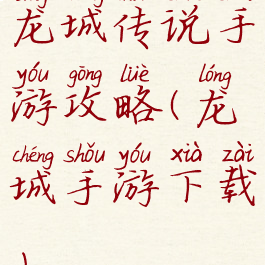 龙城传说手
yóu gōng lüè lóng
游攻略(龙
chéng shǒu yóu xià zài
城手游下载